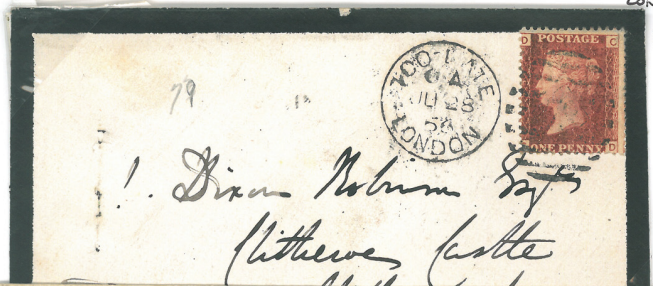 79
TOO-LATE
JU 28
58
LONDON
D C
POSTAGE
ONE PENNY
D
Dixon Robinson Esqre
Clitheroe Castle